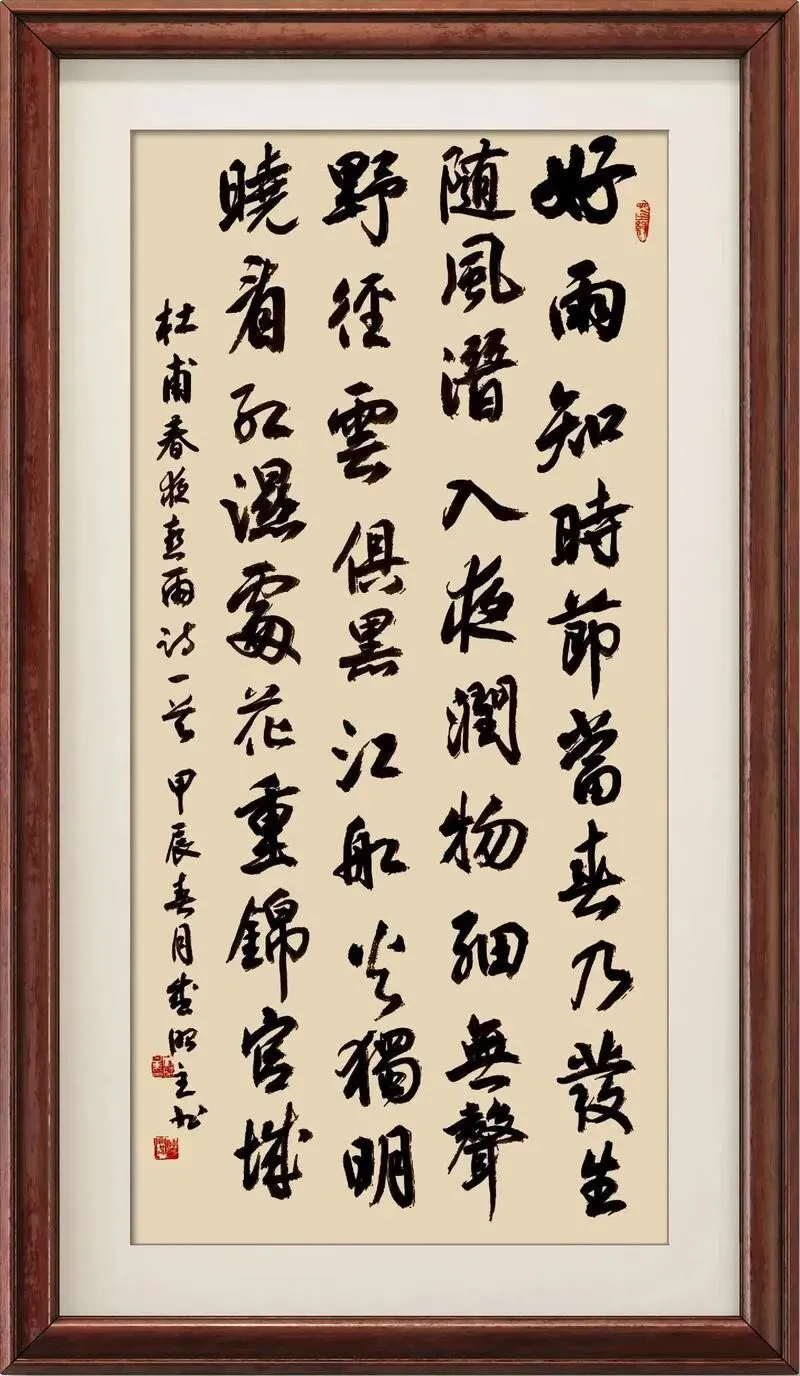 好雨知時節當春乃發生
随風潛入夜潤物細無聲
野徑雲俱黑江船火獨明
曉看红濕處花重錦官城
杜甫春夜喜雨诗一首甲辰春月